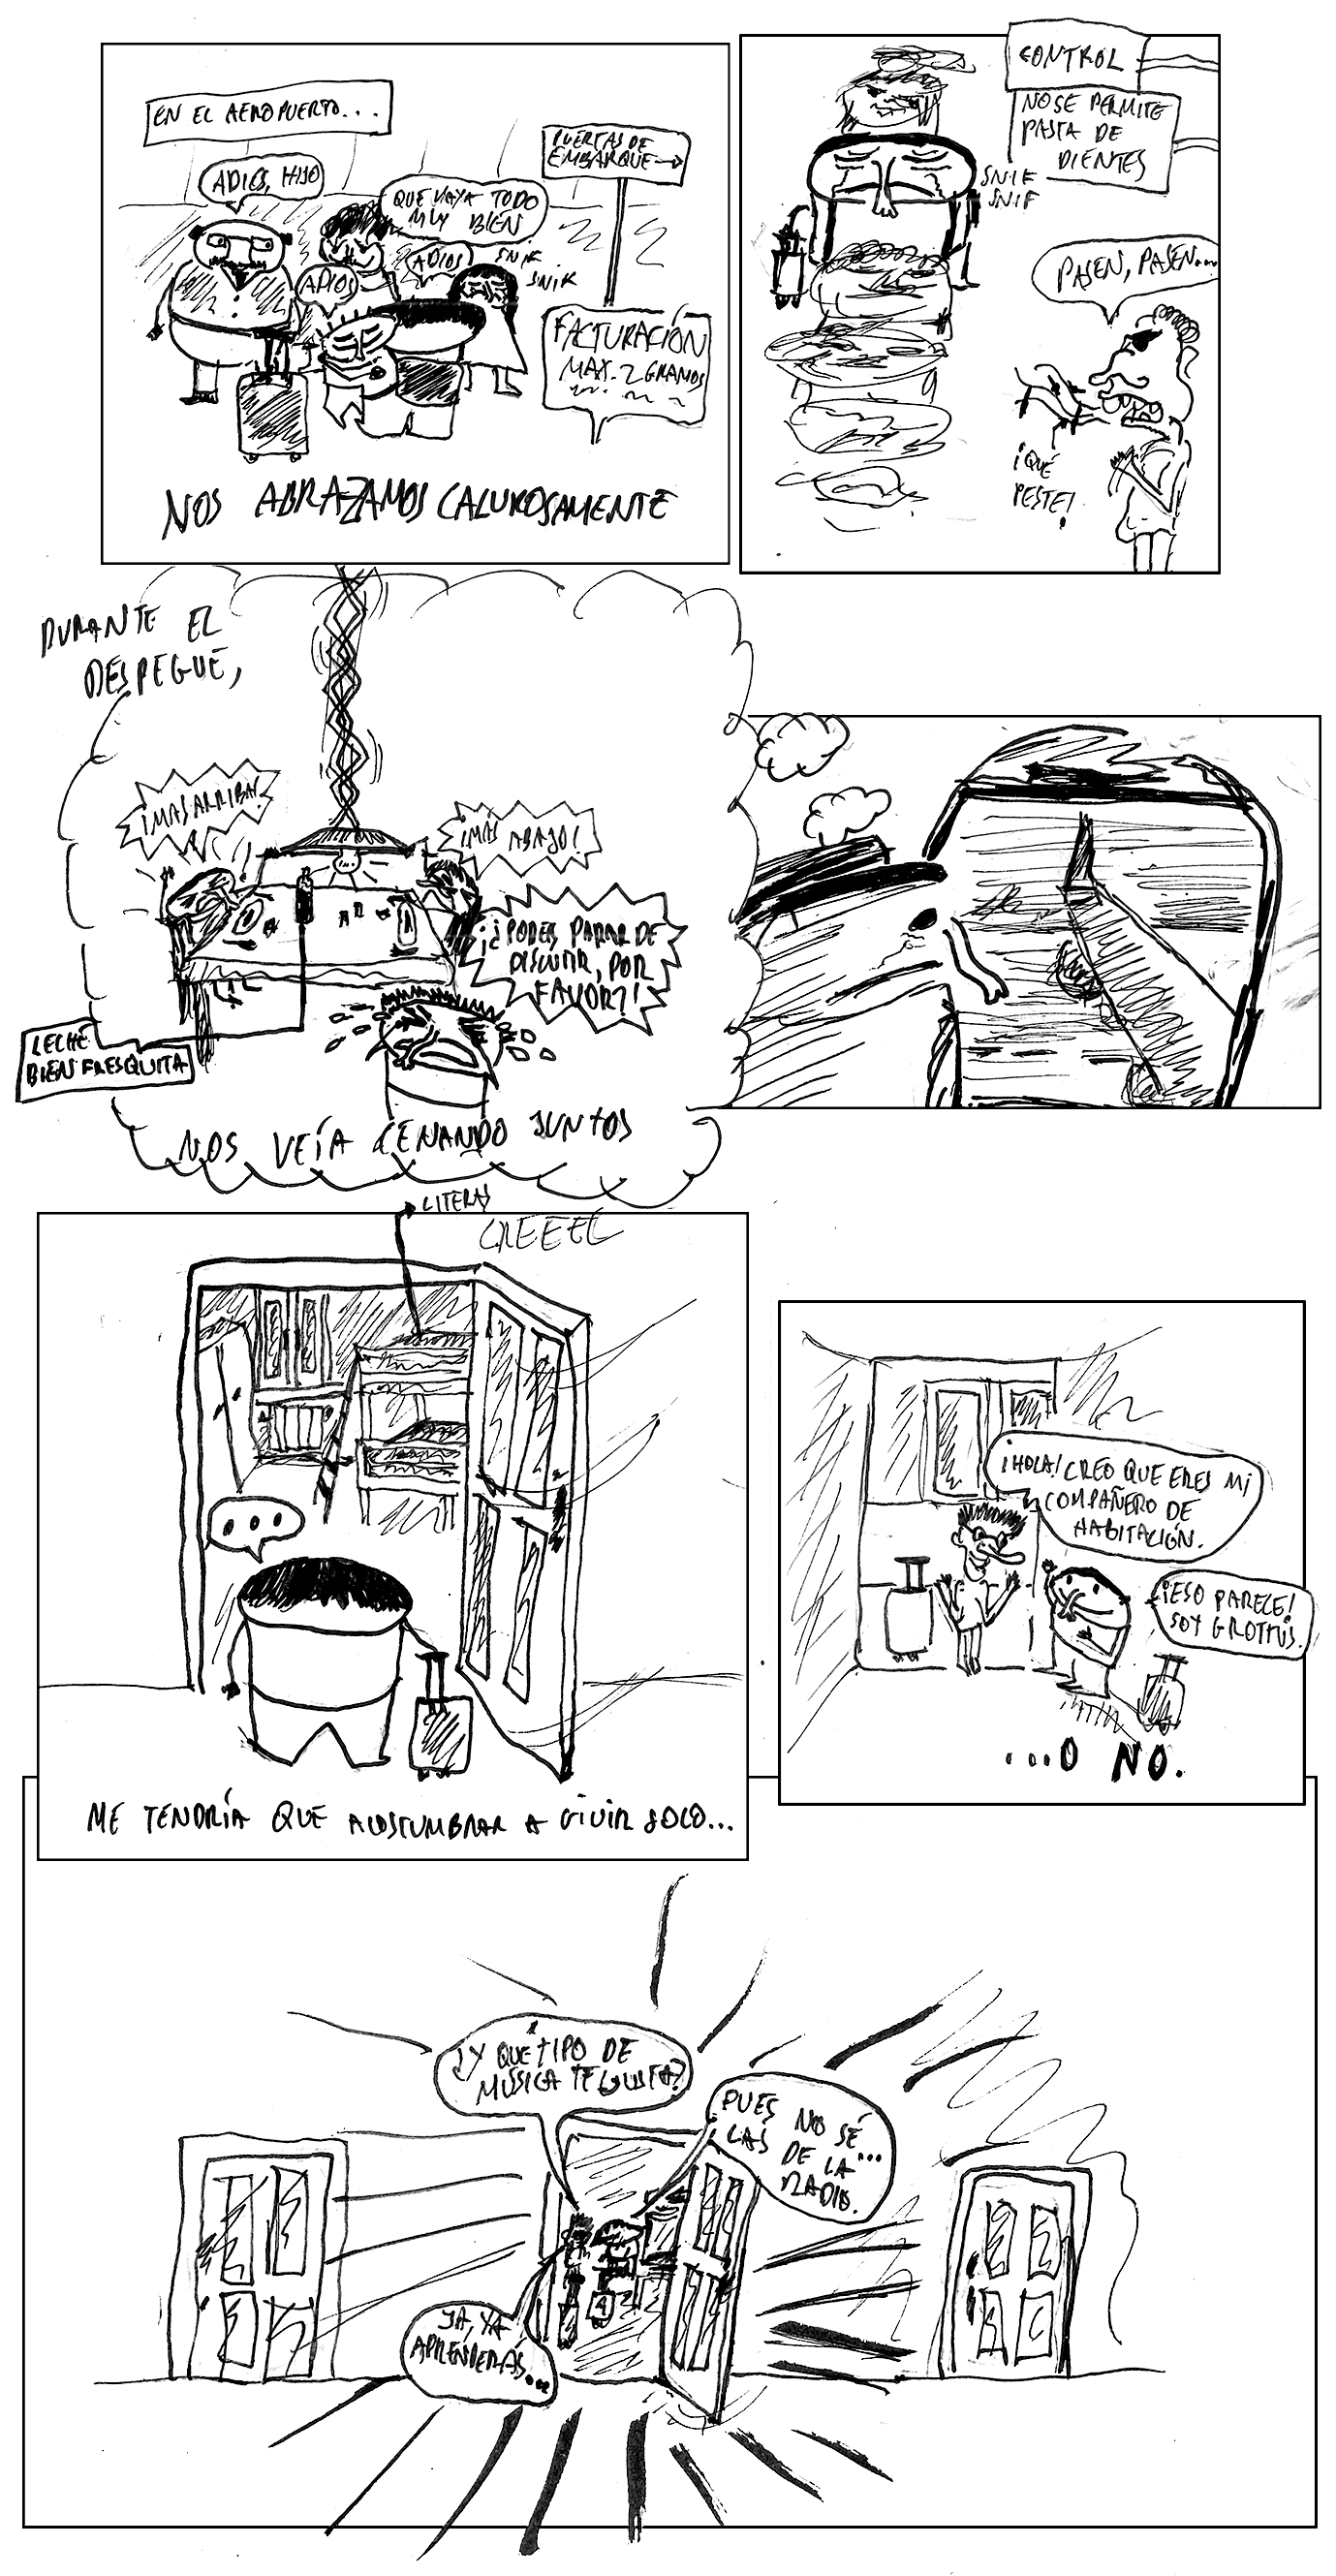 EN EL AEROPUERTO...
ADIOS, HIJO
QUE VAYA TODO
MUY BIEN
ADIOS
ADIOS
SNIF
SNIK
PUERTAS DE
EMBARQUE→
FACTURACIÓN
MAX. 2 GRAMOS
NOS ABRAZAMOS CALUROSAMENTE
CONTROL
NO SE PERMITE
PASTA DE
DIENTES
SNIF
SNIF
PASEN, PASEN...
¡QUÉ
PESTE!
DURANTE EL
DESPEGUE,
¡MAS ARRIBA!
¡MÁS ABAJO!
¡¿PODÉIS PARAR DE
DISCUTIR, POR
FAVOR?!
LECHE
BIEN FRESQUITA
NOS VEÍA CENANDO JUNTOS
LITERAS
CREEEC
...
ME TENDRÍA QUE ACOSTUMBRAR A VIVIR SOLO...
¡HOLA! CREO QUE ERES MI
COMPAÑERO DE
HABITACIÓN.
¡ESO PARECE!
SOY GROTTUS.
...O NO.
¿Y QUÉ TIPO DE
MÚSICA TE GUSTA?
PUES NO SÉ...
LAS DE LA
RADIO.
JA, YA
APRENDERÁS...